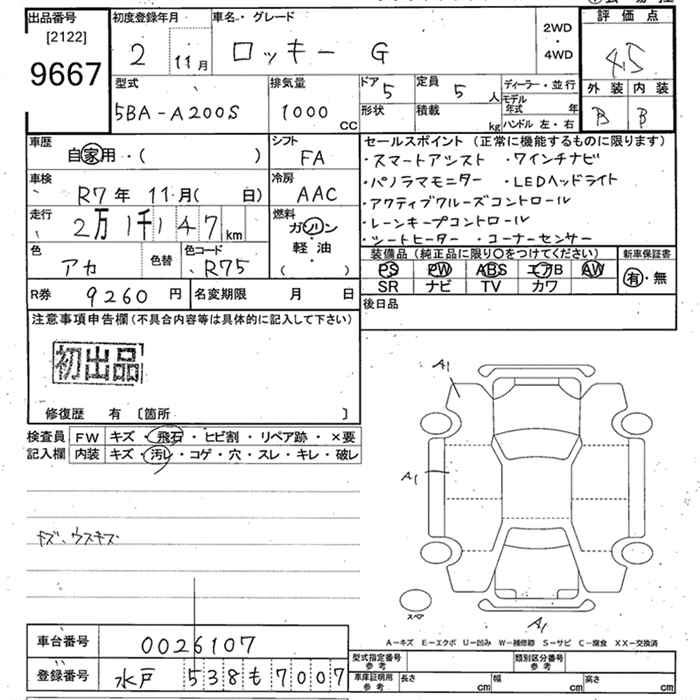 出品番号 初度登録年月 車名・グレード 2WD・4WD 評価点
[2122]
9667
2 11月 ロッキー G 4.5
型式 排気量 ドア 5 定員 5人 ディーラー・並行 外装 内装
5BA-A200S 1000cc 形状 積載 kg モデル年式 年 B B
ハンドル 左・右
車歴 自家用・( ) シフト FA セールスポイント (正常に機能するものに限ります)
・スマートアシスト ・9インチナビ
車検 R7年 11月( 日) 冷房 AAC ・パノラマモニター ・LEDヘッドライト
・アクティブクルーズコントロール
走行 2万1千147km 燃料 ガソリン・軽油・( ) ・レーンキープコントロール
・シートヒーター ・コーナーセンサー
色 アカ 色替 色コード R75 装備品 (純正品に限り○をつけてください) 新車保証書
PS PW ABS エアB AW 有・無
SR ナビ TV カワ
R券 9260円 名変期限 月 日 後日品
注意事項申告欄 (不具合内容等は具体的に記入して下さい)
初出品
修復歴 有 〔箇所 〕
検査員 FW キズ・飛石・ヒビ割・リペア跡・×要
記入欄 内装 キズ・汚レ・コゲ・穴・スレ・キレ・破レ
A1
A1
キズ、ウスキズ
スペア
A1
A-キズ E-エクボ U-凹み W-補修跡 S-サビ C-腐食 XX-交換済
車台番号 0026107
型式指定番号 参考 類別区分番号 参考
登録番号 水戸 538も7007
車庫証明用 参考 長さ cm 幅 cm 高さ cm